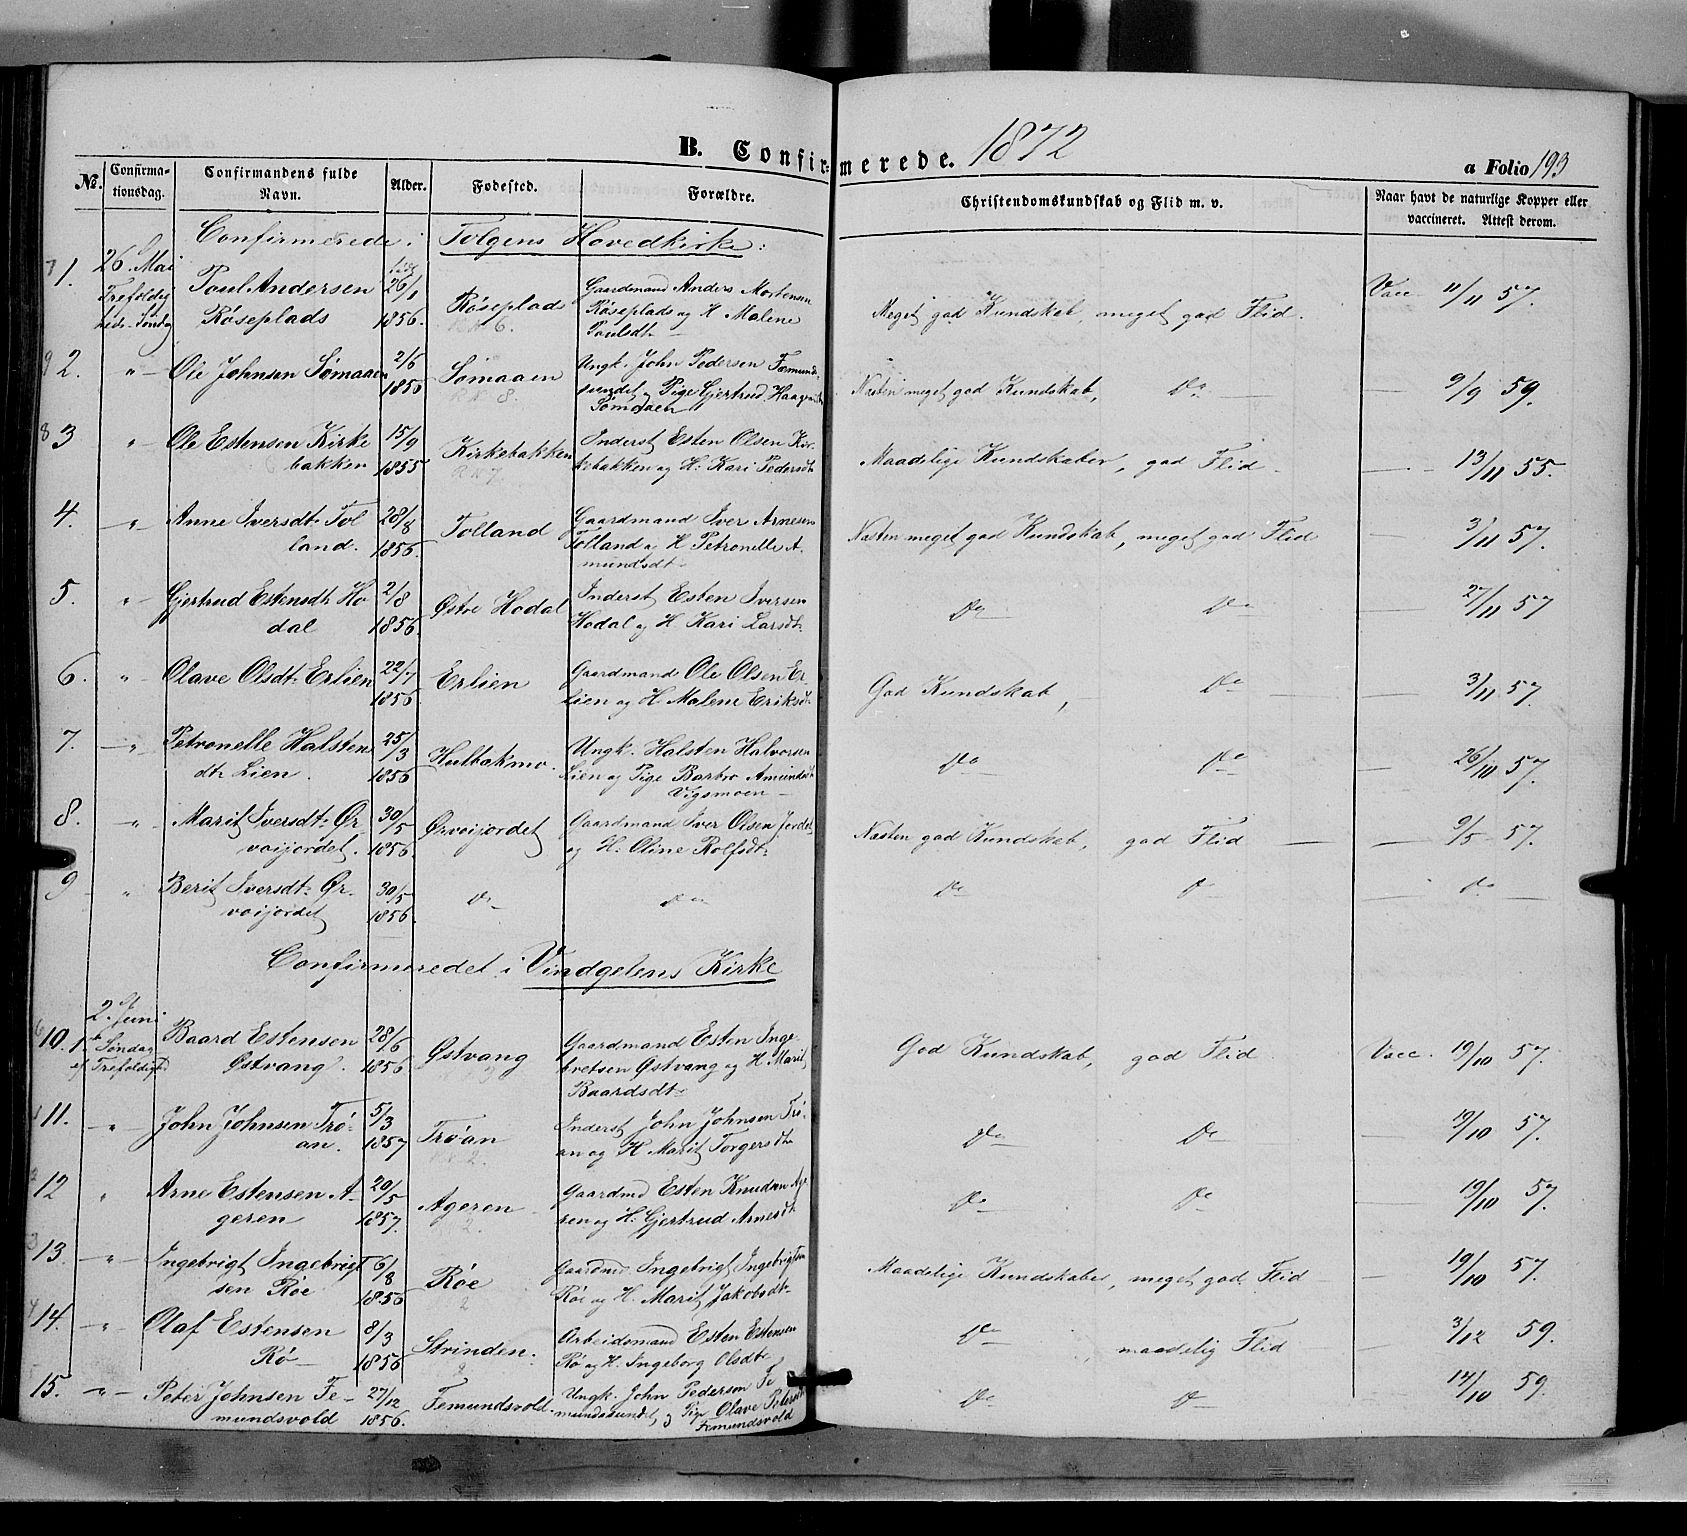 B. Confirmerede. 1872
a Folio 193
No. Confirmationsdag. Confirmandens fulde Navn. Alder. Fødested. Forældre. Christendomskundskab og Flid m. v. Naar havt de naturlige Kopper eller vaccineret. Attest derom.
Confirmerede i Tolgens Hovedkirke:
1. 26. Mai Poul Andersen 26/1 Røseplads Gaardmand Anders Mortensen Meget god Kundskab, meget god Flid. Vacc. 11/11 57.
Trefoldig Røseplads 1856. Røseplads og H. Malene
heds-Søndag Poulsdt.
2. " Ole Johnsen Sømaaen 2/6 Sømaaen Ungk. John Pedersen Fæmund- Næsten meget god Kundskab, Do 9/9 59.
1856 sundet og Pige Gjertrud Haagensdt
Sømaaen
3 " Ole Estensen Kirke 15/9 Kirkebakken Inderst Esten Olsen Kir- Maadelige Kundskaber, god Flid. 13/11 55.
bakken 1855 kebakken og H. Kari Pedersdt
4. " Anne Iversdt. Tol 28/8 Tolland Gaardmand Iver Arnesen Næsten meget god Kundskab, meget god Flid 3/11 57.
land. 1856. Tolland og H. Petronelle A-
mundsdt
5. " Gjertrud Estensdt. Ho 2/8 Østre Hodal Inderst Esten Iversen Do Do 27/11 57
dal 1856. Hodal og H. Kari Larsdt.
6. " Olave Olsdt. Erlien 22/7 Erlien Gaardmand Ole Olsen Er- God Kundskab, Do 3/11 57.
1856. lien og H. Malene Eriksdt.
7. " Petronelle Halsten 25/3 Hulbakmo. Ungk. Halsten Halvorsen Do Do 26/10 57.
dt. Lien. 1856 Lien og Pige Barbro Amundsdt
Vigsmoen
8. " Marit Iversdt. Ør 30/5 Ørvoijordet Gaardmand Iver Olsen Jordet Næsten god Kundskab, god Flid 9/5 57.
voijordet. 1856. og H. Oline Rolfsdt.
9 " Berit Iversdt. Ør- 30/5 Do Do Do Do Do
voijordet 1856.
Confirmeredet i Vindgelens Kirke
10. 2. Juni Baard Estensen 28/6 Østvang Gaardmand Esten Inge- God Kundskab, god Flid Vacc. 19/10 57.
1ste Søndag Østvang. 1856 bretsen Østvang og H. Marit
ef Trefoldighed Baardsdt.
11. " John Johnsen Trø- 5/3 Trøan Inderst John Johnsen Trø- Do Do 19/10 57.
an. 1857 an og H. Marit Torgersdt
12 " Arne Estensen A- 20/5 Ageren Gaardmd Esten Knudsen Age Do Do 19/10 57.
geren 1857. ren og H. Gjertrud Arnesdt
13. " Ingebrigt Ingebrigt 6/8 Røe Gaardmd Ingebrigt Ingebrigtsen Maadelige Kundskaber, meget god Flid 19/10 57.
sen Røe 1856 Røe og H. Marit Jakobsdt
14. " Olaf Estensen 8/3 Strinden. Arbeidsmand Esten Estensen Do maadelig Flid 3/12 59.
Rø 1856 Rø og H. Ingeborg Olsdt.
15. " Peter Johnsen Fe- 27/12 Femundsvold. Ungk. John Pedersen Fe Do Do 14/10 59.
mundsvold 1856. mundssundet og Pige Olave Petersdt
Femundsvold